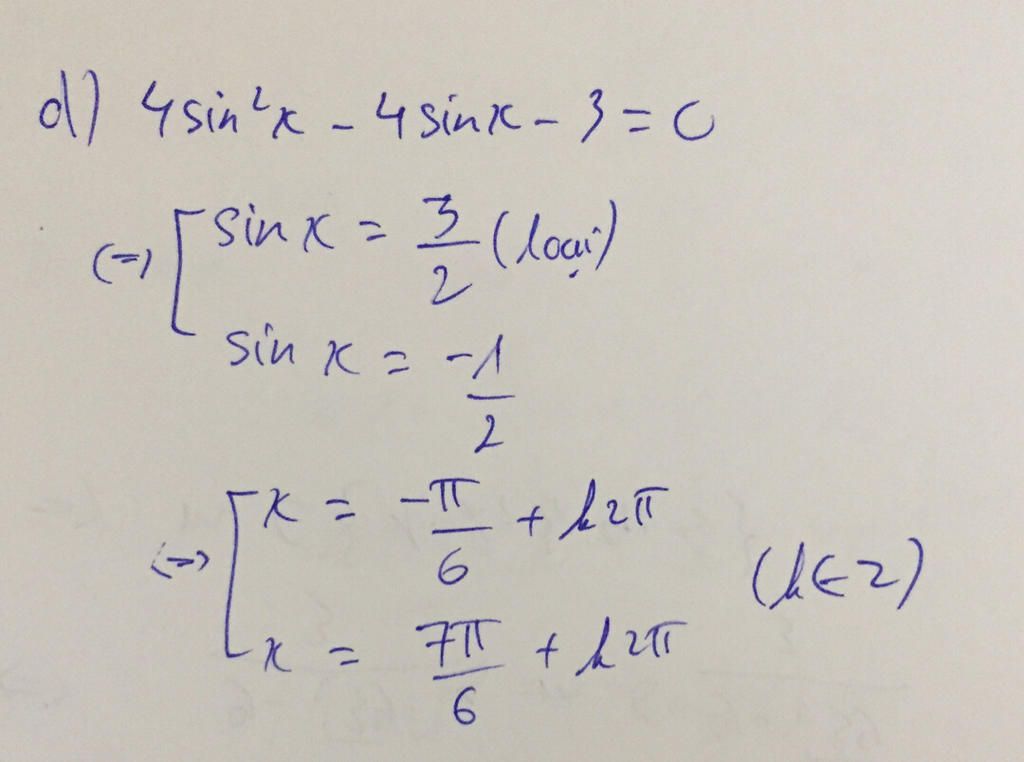 d) 4sin²x - 4sinx - 3 = 0
(=) [ sin x = 3/2 (loại)
sin x = -1/2
(=) [ x = -π/6 + k2π
x = 7π/6 + k2π (k∈Z)